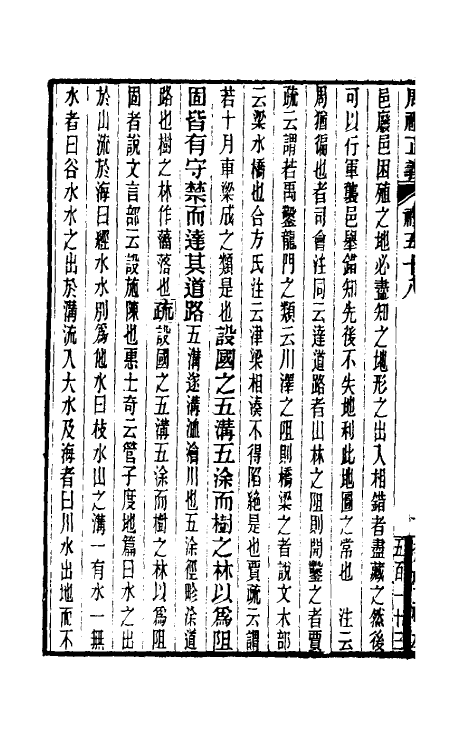 周禮正義 禮五十八
邑廢邑困殖之地必盡知之地形之出入相錯者盡藏之然後
可以行軍襲邑舉錯知先後不失地利此地圖之常也 注云
周猶徧也者司會注同云達道路者山林之阻則開鑿之者賈
疏云謂若禹鑿龍門之類云川澤之阻則橋梁之者說文木部
云梁水橋也合方氏注云津梁相湊不得陷絶是也賈疏云謂
若十月車梁成之類是也設國之五溝五涂而樹之林以爲阻
固皆有守禁而達其道路五溝遂溝洫澮川也五涂徑畛涂道
路也樹之林作藩落也疏設國之五溝五涂而樹之林以爲阻
固者說文言部云設施陳也惠士奇云管子度地篇曰水之出
於山流於海曰經水水別爲他水曰枝水山之溝一有水一無
水者曰谷水水之出於溝流入大水及海者曰川水出地而不